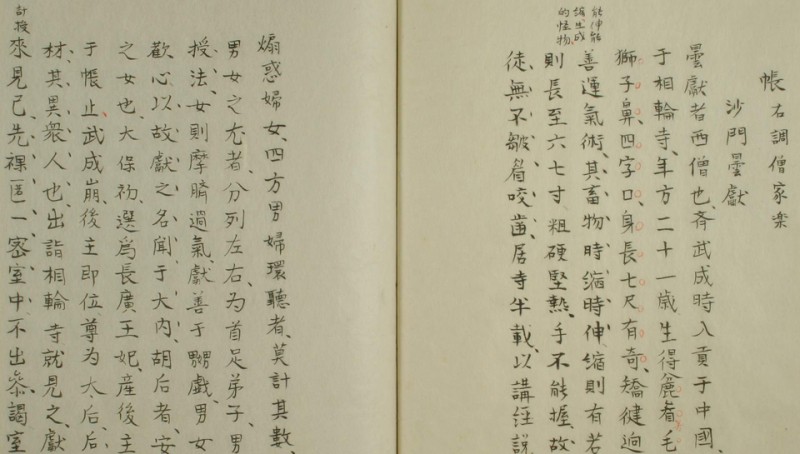 帳右調僧家樂
沙門曇獻
曇獻者西僧也、斉武成時入貢于中國、
于相輪寺、年方二十一歳生得麁眉毛
獅子鼻、四字口、身長七尺有奇、矯健逈
善運氣術、其畜物時縮時伸縮則有若
則長至六七寸粗硬堅熱、手不能握、故
徒、無不皺眉咬齒、居寺半載、以講経説
能伸能
的怪物、
煽惑婦女、四方男婦環聽者、莫計其數、
男女之尤者、分列左右、為首足弟子、男
授法、女則摩臍過氣、獻善于嬲戲、男女
歡心、以故獻之名聞于大内、胡后者、安
之女也、大保初、選爲長廣王妃、産後主
于帳止、武成崩、後主即位尊为太后、后
材、其異衆人也出詣相輪寺就見之、獻
來見已、先裸匿一密室中、不出叅謁室
計授